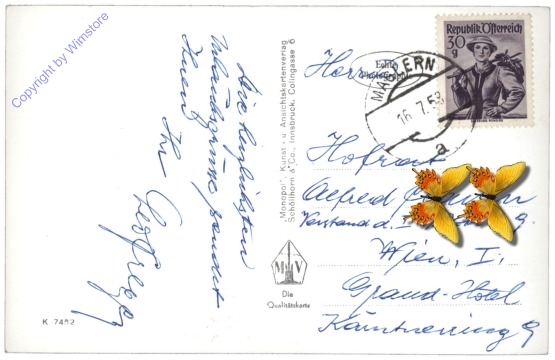 Copyright by Wimstore
Die herzlichsten
Urlaubsgrüsse sendet
Ihnen
Ihr
"Monopol", Kunst- u. Ansichtskartenverlag
Schöllhorn & Co., Innsbruck, Colingasse 6
M V
Die
Qualitätskarte
K 7452
Republik Österreich
30
g
Echte
Photographie
16.7.53
a
Herrn
Hofrat
Alfred
Vorstand d. I.
Wien, I.
Grand-Hotel
Kärntnerring 9